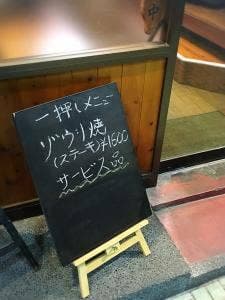 一押しメニュー
ゾウリ焼
(ステーキ)¥1600
サービス品